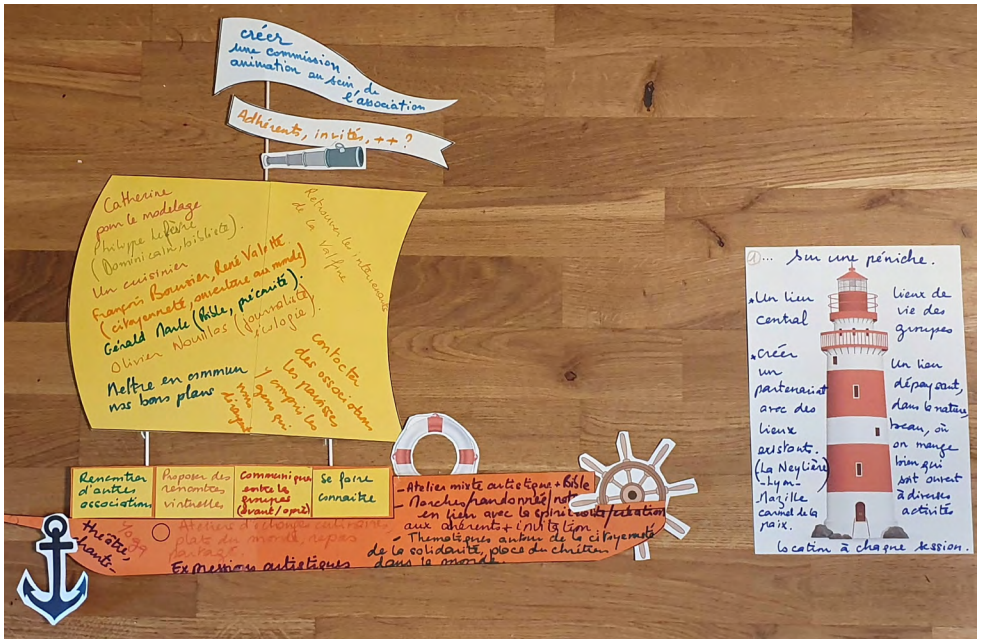 créer
une commission
animation au sein de
l'association
Adhérents, invités, ++ ?
Catherine
pour le modelage
Philippe Lefèvre
(Dominicain, bibliste).
Un cuisinier
François Boursier, René Valette
(citoyenneté, ouverture au monde)
Gérald (Bible, précarité).
Olivier Nouillas (journaliste
écologie).
Mettre en commun
nos bons plans
Retrouver le
de la Valpine
contacter
des associations
les paroisses
y compris les
gens qui
nous
Rencontrer
d'autres
associations
Proposer des
rencontres
virtuelles
Communiquer
entre les
groupes
(avant/après)
Se faire
connaître
- Atelier mixte artistique + Bible
- Marches/randonnée/
en lien avec la /création
aux adhérents + invitation
- Thématiques autour de la citoyenneté
de la solidarité, place du chrétien
dans le monde.
théâtre,
chants-
Yoga
Ateliers d'échanges culinaires,
plats du monde, repas
partagé.
Expressions artistiques
①... Sur une péniche.
* Un lieu
central
* créer
un
partenariat
avec des
lieux
existants.
(La Neylière
- Lyon
Mazille
carmel de la
paix.
Lieux de
vie des
groupes
Un lieu
dépaysant,
dans la nature,
beau, où
on mange
bien qui
soit ouvert
à diverses
activités
location à chaque session.